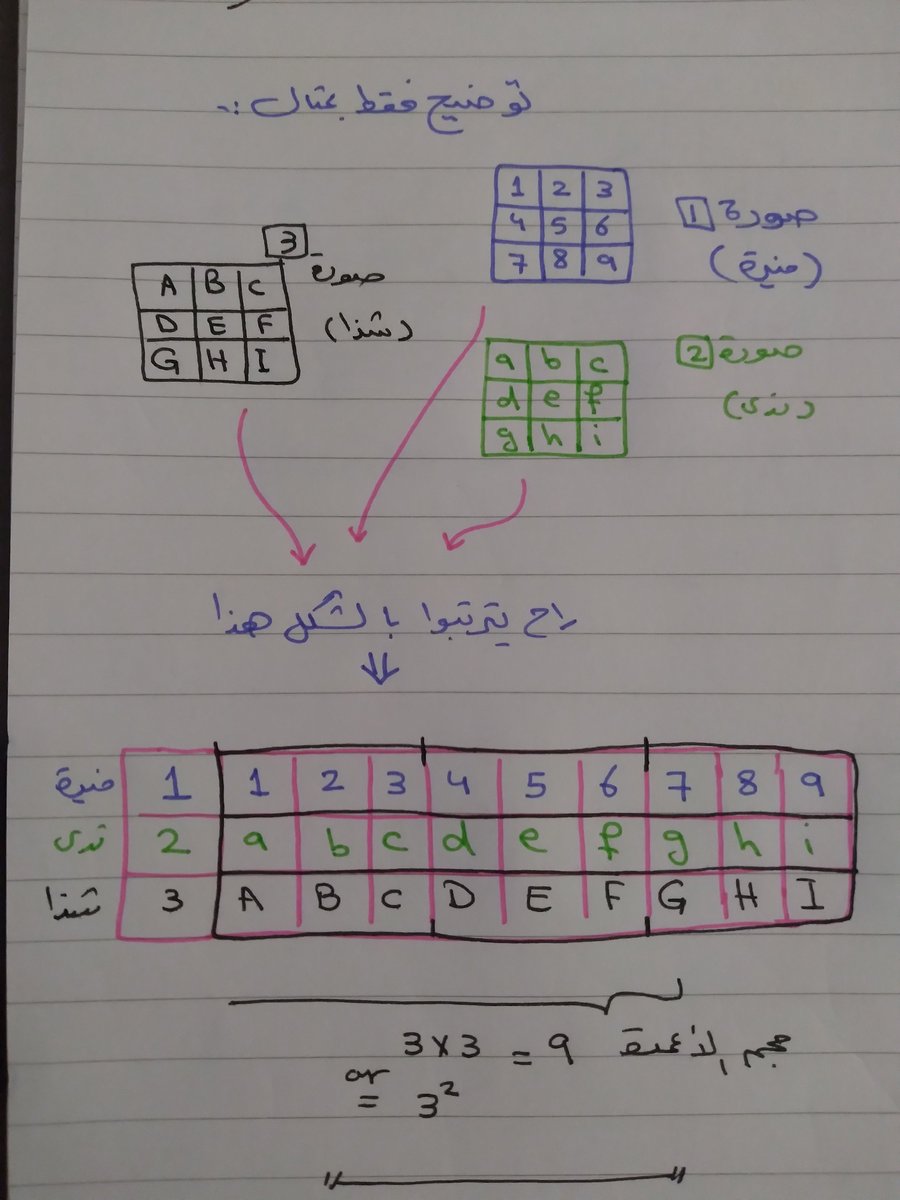 توضيح فقط بمثال :-
صورة 1
(منيرة)
1 2 3
4 5 6
7 8 9
3
صورة
(شذا)
A B C
D E F
G H I
صورة 2
(ندى)
a b c
d e f
g h i
راح يترتبوا بالشكل هذا
منيرة 1 1 2 3 4 5 6 7 8 9
ندى 2 a b c d e f g h i
شذا 3 A B C D E F G H I
حجم الأعمدة 3 x 3 = 9
or
= 3²